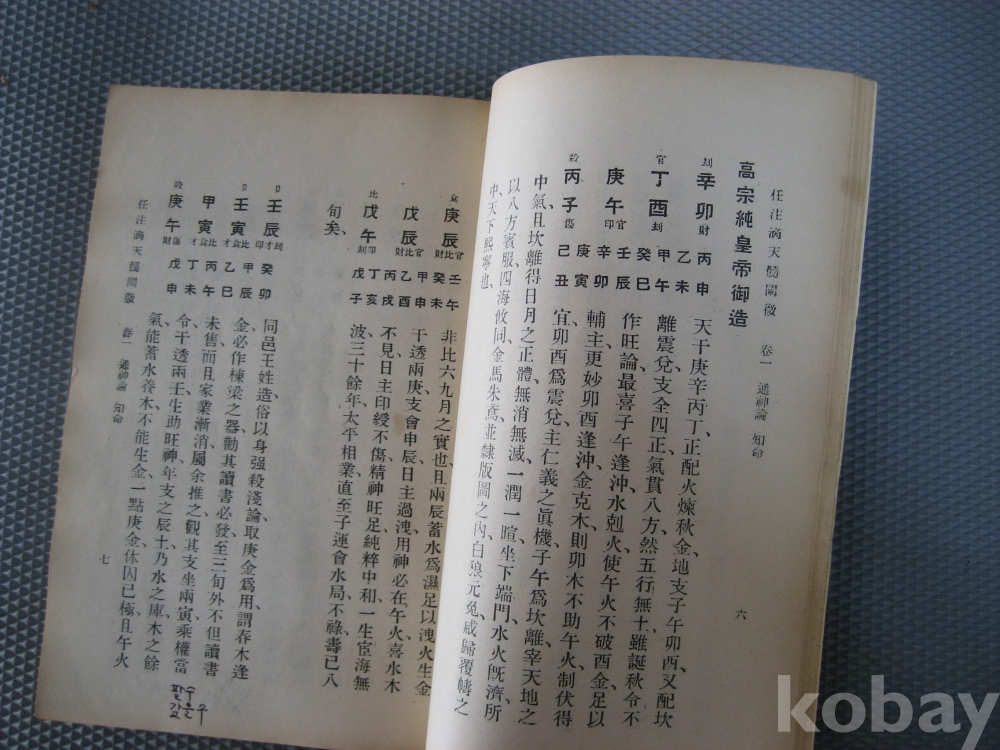 任注滴天髓闡微　卷一　通神論　知命　六
高宗純皇帝御造
劫辛卯財　丙申　天干庚辛丙丁、正配火煉秋金、地支子午卯酉、又配坎
乙未
官丁酉劫　甲午　離震兌、支全四正、氣貫八方、然五行無土、雖誕秋令、不
癸巳　作旺論、最喜子午逢沖、水剋火、使午火不破酉金、足以
庚午官印　壬辰
辛卯　輔主、更妙卯酉逢沖、金克木、則卯木不助午火、制伏得
庚寅
殺丙子傷　己丑　宜、卯酉爲震兌、主仁義之眞機、子午爲坎離、宰天地之
中氣、且坎離得日月之正體、無消無滅、一潤一暄、坐下端門、水火旣濟、所
以八方賓服、四海攸同、金馬朱鳶、並隸版圖之內、白狼元兔、咸歸覆幬之
中、天下熙寧也、
食庚辰官比財　壬午　非比六九月之實也、且兩辰蓄水爲濕、足以洩火生金
癸未
戊辰官比財　甲申　干透兩庚、支會申辰、日主過洩、用神必在午火、喜水木
乙酉
丙戌　不見、日主印綬不傷、精神旺足、純粹中和、一生宦海無
比戊午印劫　丁亥
戊子　波、三十餘年太平相業、直至子運會水局不祿、壽已八
旬矣、
卩壬辰劫才印　癸卯　同邑王姓造、俗以身强殺淺論、取庚金爲用、謂春木逢
甲辰
卩壬寅比食才　乙巳　金、必作棟梁之器、勸其讀書必發、至三旬外、不但讀書
丙午
甲寅比食才　丁未　未售、而且家業漸消、屬余推之、觀其支坐兩寅乘權當
殺庚午傷財　戊申　令、干透兩壬、生助旺神、年支之辰土、乃水之庫、木之餘
氣、能蓄水養木、不能生金、一點庚金、休囚已極、且午火
任注滴天髓闡微　卷一　通神論　知命　七
kobay